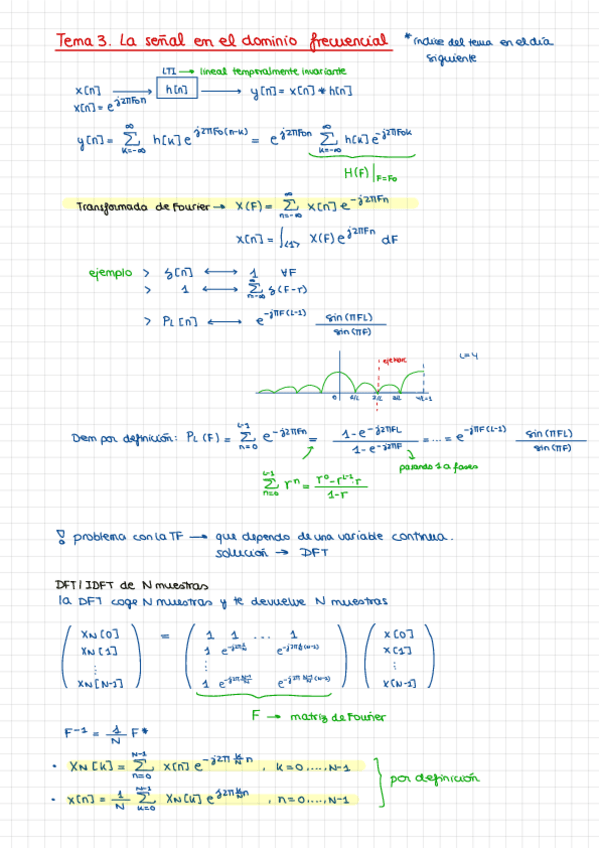 Tema 3. La señal en el dominio frecuencial * índice del tema en el día siguiente
LTI → lineal temporalmente invariante
x[n] → h[n] → y[n] = x[n] * h[n]
x[n] = e^{j2πF₀n}
y[n] = Σ_{k=-∞}^{∞} h[k] e^{j2πF₀(n-k)} = e^{j2πF₀n} Σ_{k=-∞}^{∞} h[k] e^{-j2πF₀k}
H(F)|_{F=F₀}
Transformada de Fourier → X(F) = Σ_{n=-∞}^{∞} x[n] e^{-j2πFn}
x[n] = ∫_{<1>} X(F) e^{j2πFn} dF
ejemplo > δ[n] ↔ 1 ∀F
> 1 ↔ Σ_{n=-∞}^{∞} δ(F-r)
> P_L[n] ↔ e^{-jπF(L-1)} sin(πFL) / sin(πF)
L=4
0 1/L 2/L 3/L 4/L=1
Dem por definición: P_L(F) = Σ_{n=0}^{L-1} e^{-j2πFn} = (1-e^{-j2πFL}) / (1-e^{-j2πF}) = ... = e^{-jπF(L-1)} sin(πFL) / sin(πF)
pasando 1 a fases
Σ_{n=0}^{L-1} rⁿ = (r⁰ - r^{L-1}·r) / (1-r)
! problema con la TF → que depende de una variable continua.
solución → DFT
DFT/IDFT de N muestras
la DFT coge N muestras y te devuelve N muestras
X_N[0] = 1 1 ... 1 x[0]
X_N[1] 1 e^{-j2π1/N} e^{-j2π1/N(N-1)} x[1]
⋮ ⋮ ⋮
X_N[N-1] 1 e^{-j2π(N-1)/N} e^{-j2π(N-1)/N(N-1)} x[N-1]
F → matriz de Fourier
F^{-1} = 1/N F*
• X_N[k] = Σ_{n=0}^{N-1} x[n] e^{-j2π k/N n}, k=0,...,N-1
por definición
• x[n] = 1/N Σ_{k=0}^{N-1} X_N[k] e^{j2π k/N n}, n=0,...,N-1